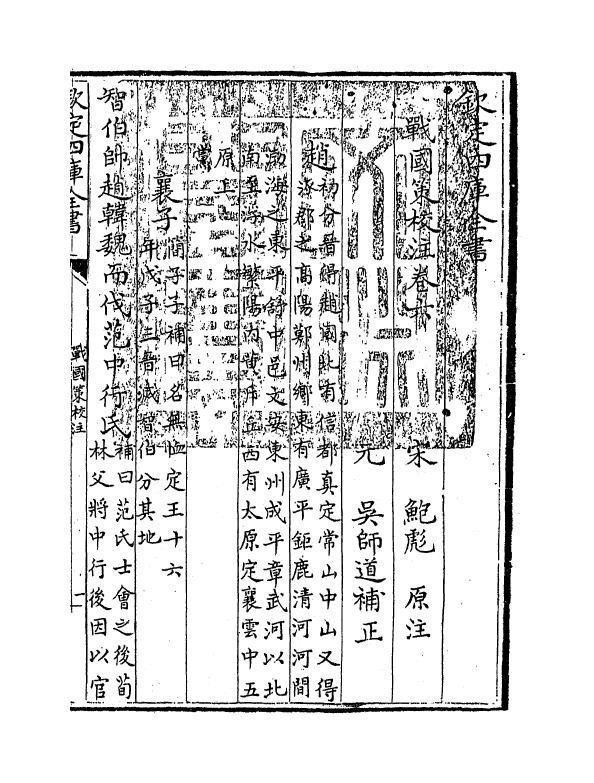 欽定四庫全書
戰國策校注卷六
宋 鮑彪 原注
元 吳師道補正
趙初分晉得趙國北有信都真定常山中山又得
涿郡之高陽鄭州鄉東有廣平鉅鹿清河河間
渤海之東平舒中邑文安東州成平章武河以北
南至浮水繁陽內黃斥丘西有太原定襄雲中五
原上
黨
襄子簡子子補曰名無恤定王十六
年戊子三晉滅智伯分其地
智伯帥趙韓魏而伐范中行氏補曰范氏士會之後荀
林父將中行後因以官
欽定四庫全書
戰國策校注
一